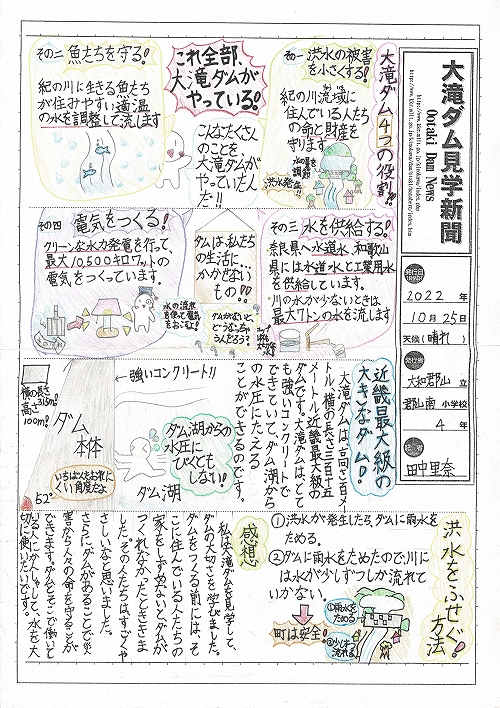 大滝ダム見学新聞
Ootaki Dam News
発行日
2022年
10月25日
天候(晴れ)
発行者
大和郡山立
郡山南小学校
4年
田中里奈
大滝ダム4つの役割!!
その一 洪水の被害
を小さくする!
紀の川流域に
住んでいる人たち
の命と財産を
守ります
洪水発生!!
これ全部、
大滝ダムが
やっている!
こんなたくさん
のことを
大滝ダムが
やっていた
んだ!!
その二 魚たちを守る!
紀の川に生きる魚たち
が住みやすい適温
の水を調整して流します
その三 水を供給する!
奈良県へ水道水、和歌山
県には水道水と工業用水
を供給しています。
川の水が少ないときは
最大7トンの水を流します
ダムは私たち
の生活に…
かかせない
もの!!
ダムがないと、
どうなっちゃ
うんだろう?
その四 電気をつくる!
クリーンな水力発電を行って
最大10,500キロワットの
電気をつくっています。
水の流れ
を使って電気
をおこすよ!
近畿最大級の
大きなダム!
大滝ダムは、高さ百メー
トル、横の長さ三百十五
メートル近畿最大級の
ダムです。大滝ダムは、とて
も強いコンクリートで
できていて、ダム湖から
の水圧にたえる
ことができるのです。
←強いコンクリート!!
横の長さ
315m!
高さ
100m!
ダム
本体
ダム湖からの
水圧に
びくとも
しない!
ダム湖
いちばんたおれに
くい角度だよ
52°
洪水をふせぐ!
方法
①洪水が発生したら、ダムに雨水を
ためる。
②ダムに雨水をためたので、川に
は水が少しずつしか流れて
いかない。
町は安全!
①雨水を
ためる
②少しずつ
流れる
感想
私は大滝ダムを見学して、
ダムの大切さを学びました。
ダムをつくる前には、そ
こに住んでいる人たちの
家をしずめないとダムが
つくれなかったとききま
した。その人たちはすごくや
さしいなと思いました。
さらに、ダムがあることで災
害から人々の命を守ることがで
きます。ダムとそこで働いて
る人にかんしゃして、水を大
切に使いたいです。